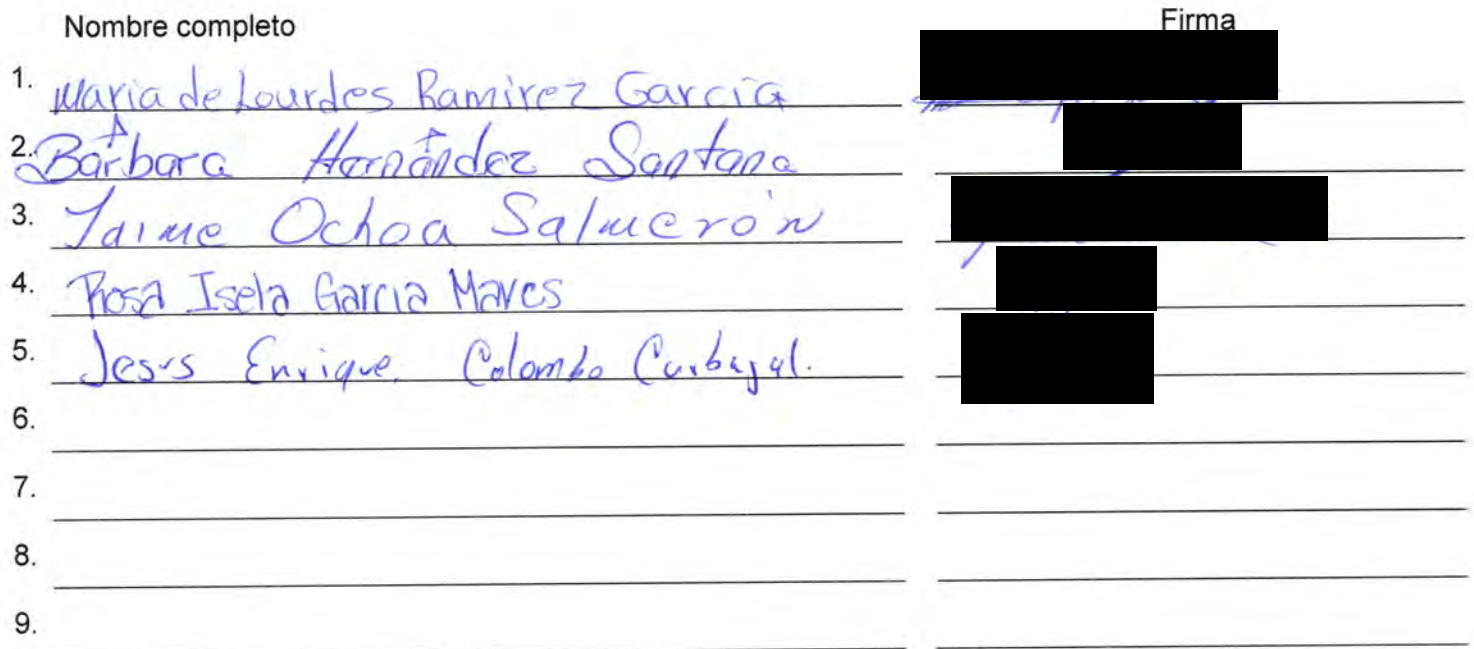 Nombre completo Firma
1. Maria de Lourdes Ramirez Garcia
2. Bárbara Hernández Santana
3. Jaime Ochoa Salmerón
4. Rosa Isela Garcia Mares
5. Jesus Enrique Colombo Carbajal.
6.
7.
8.
9.